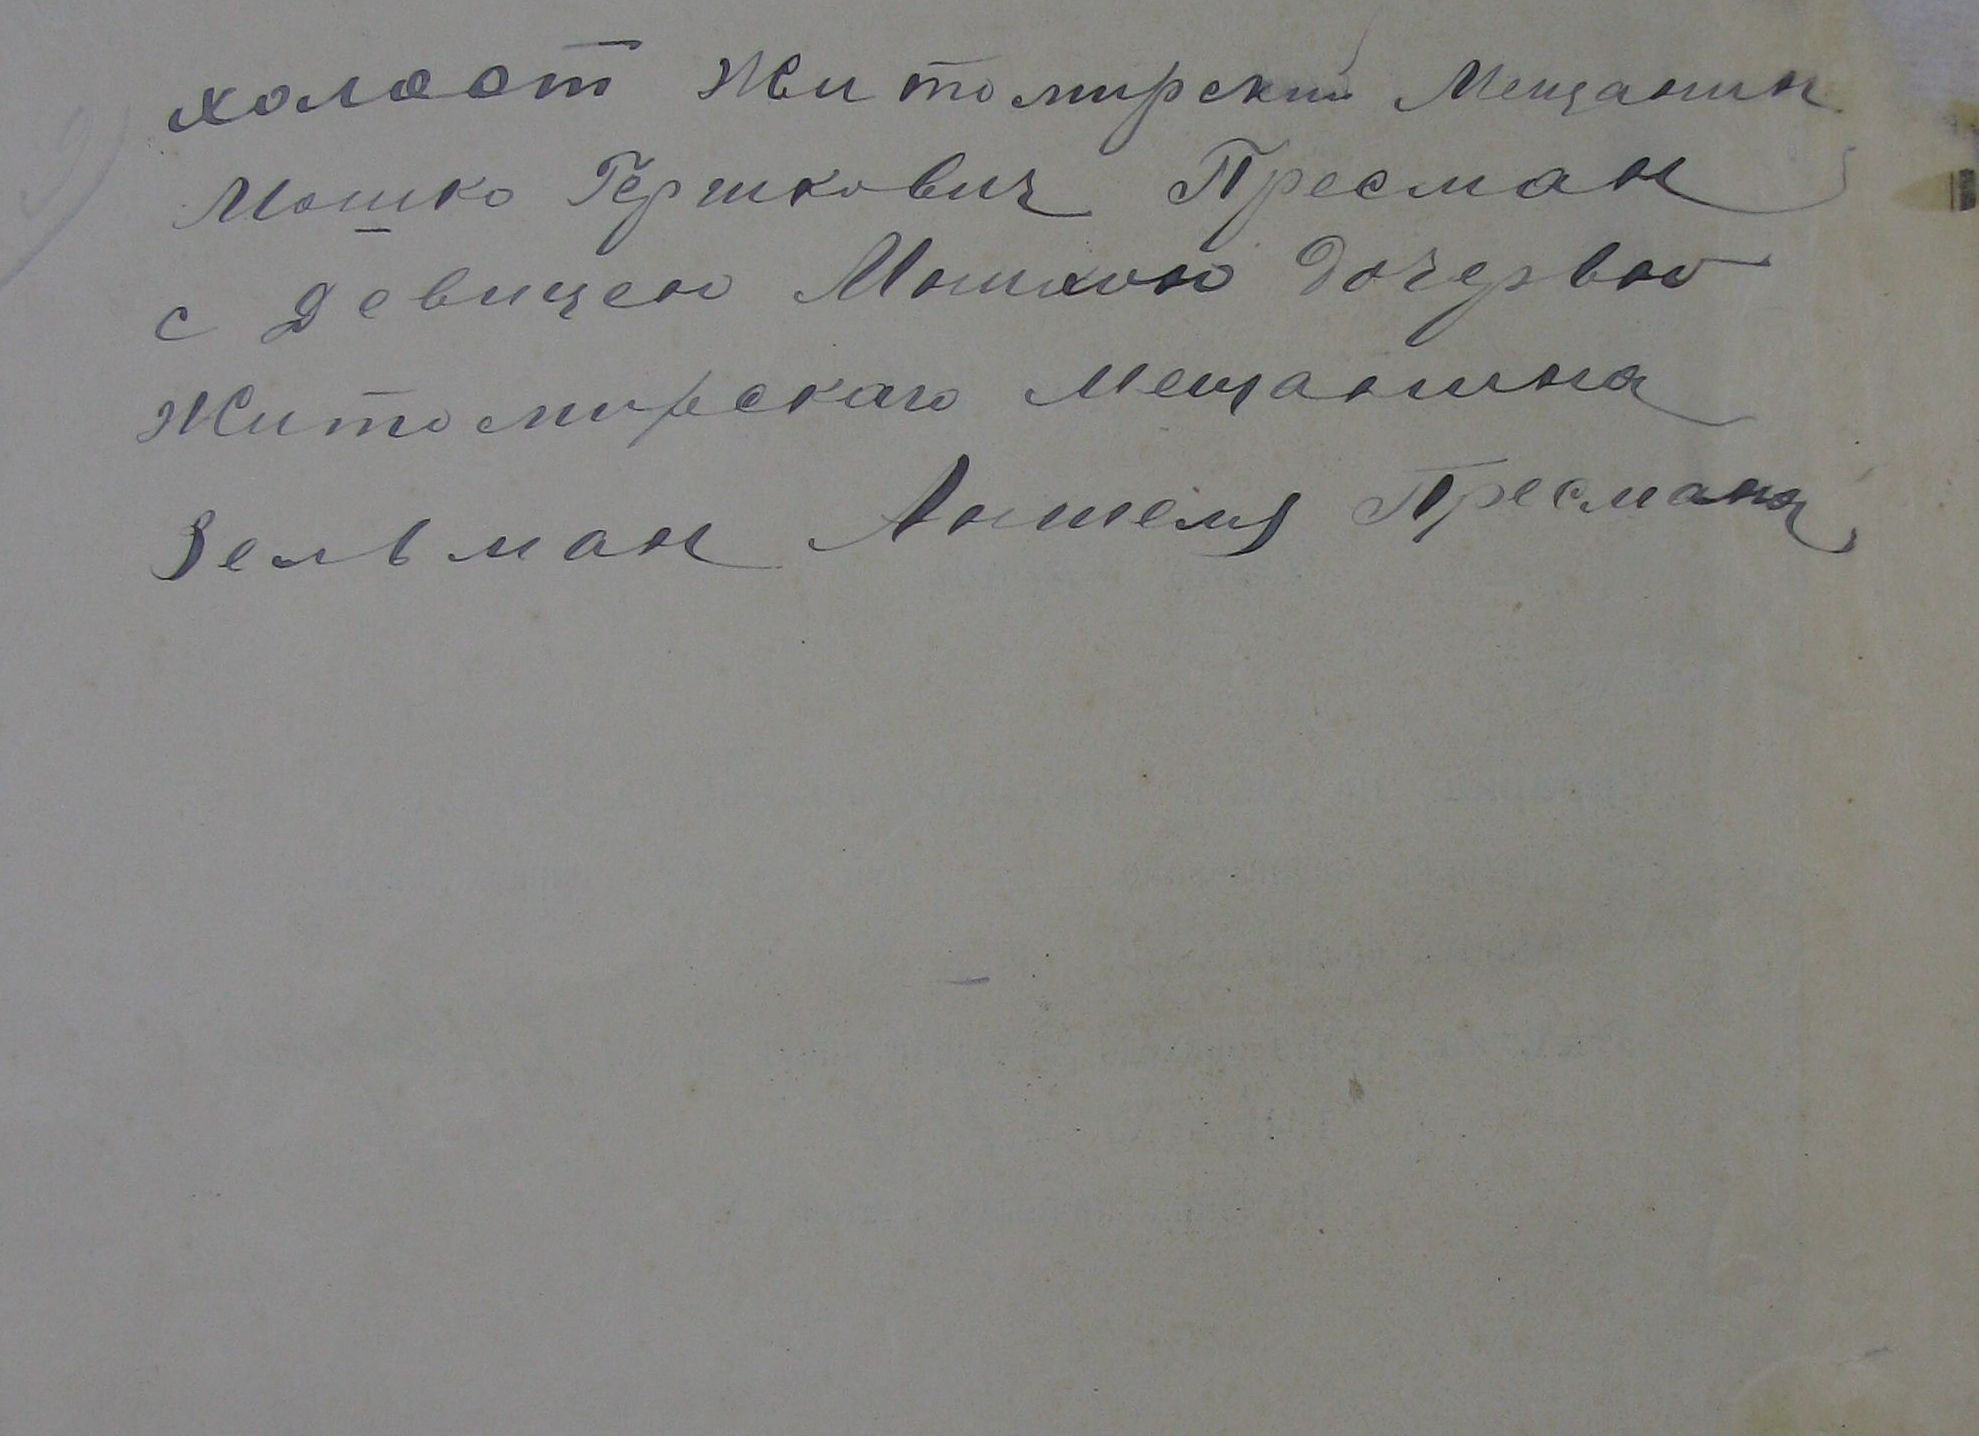 холост Житомирский Мещанин
Мошко Гершкович Пресман
с девицею дочерью
Житомирскаго Мещанина
Зельман Аншеля Пресмана